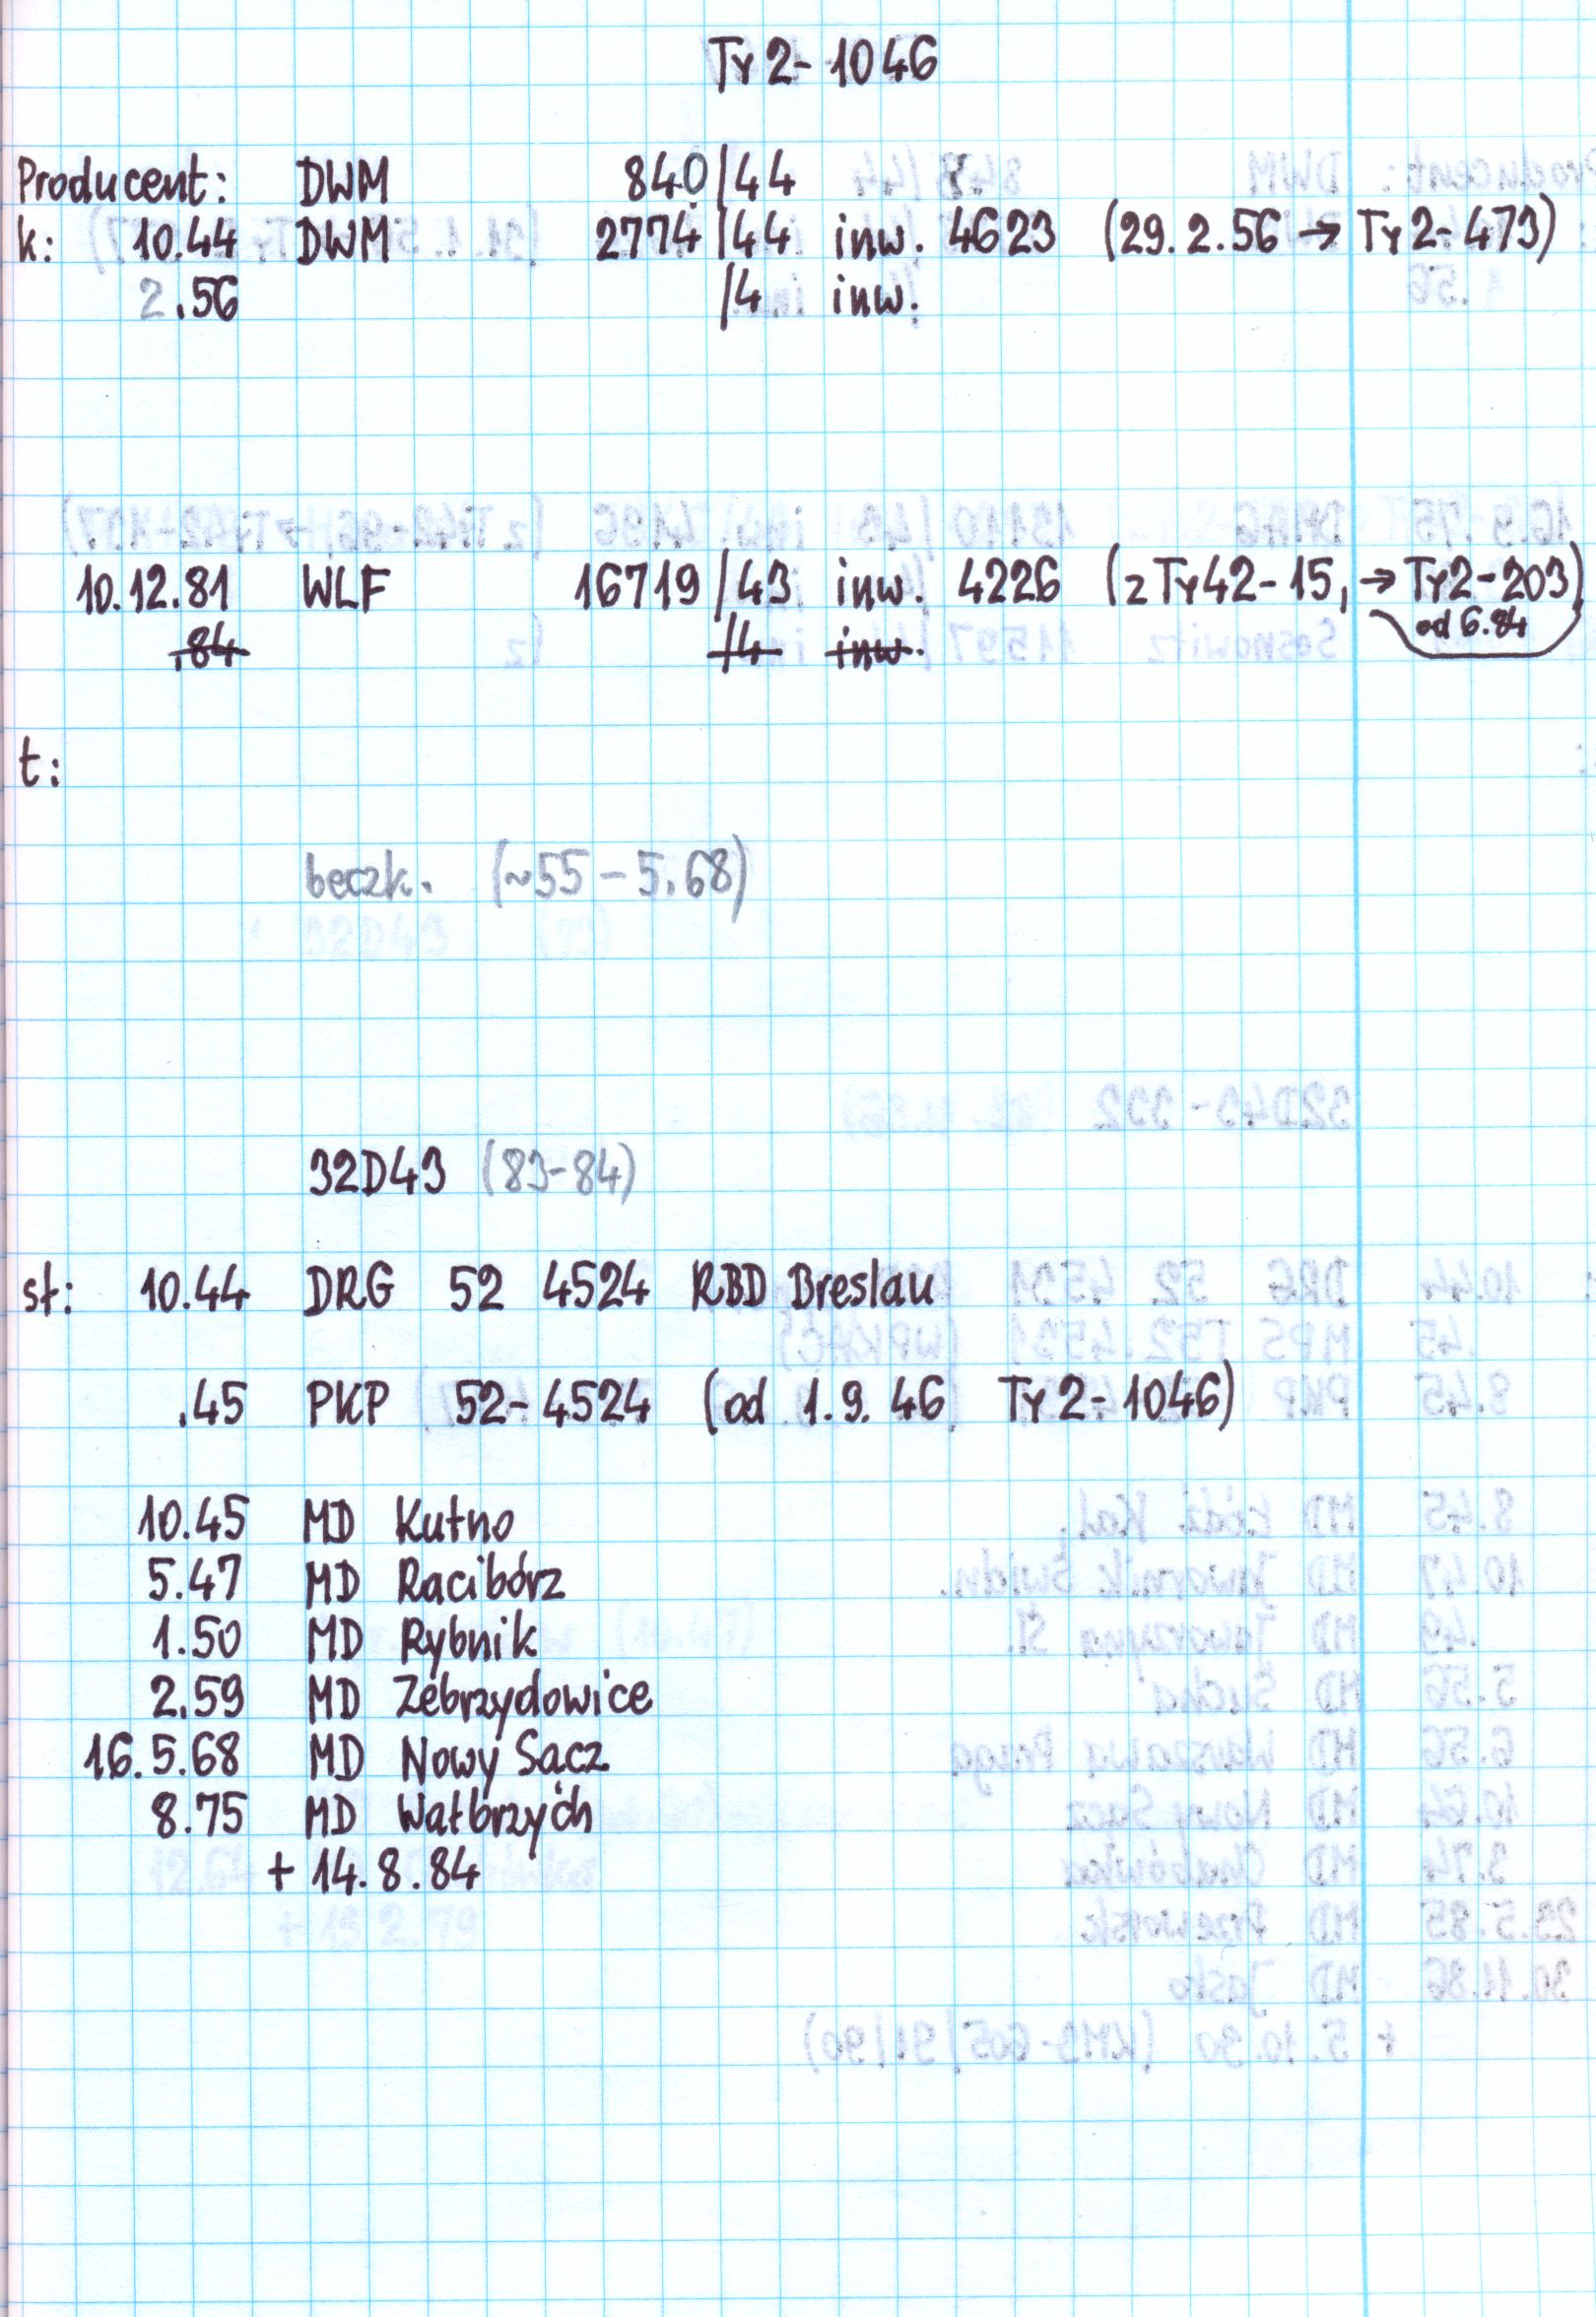 Ty2-1046
Producent: DWM 840/44
k: 10.44 DWM 2774/44 inw. 4623 (29.2.56 → Ty2-473)
2.56 /4 inw.
10.12.81 WLF 16719/43 inw. 4226 (z Ty42-15, → Ty2-203)
.84 /4 inw. od 6.84
t:
beczk. (~55-5.68)
32D43 (83-84)
st: 10.44 DRG 52 4524 RBD Breslau
.45 PKP 52-4524 (od 1.9.46 Ty2-1046)
10.45 MD Kutno
5.47 MD Racibórz
1.50 MD Rybnik
2.59 MD Zebrzydowice
16.5.68 MD Nowy Sącz
8.75 MD Wałbrzych
+ 14.8.84